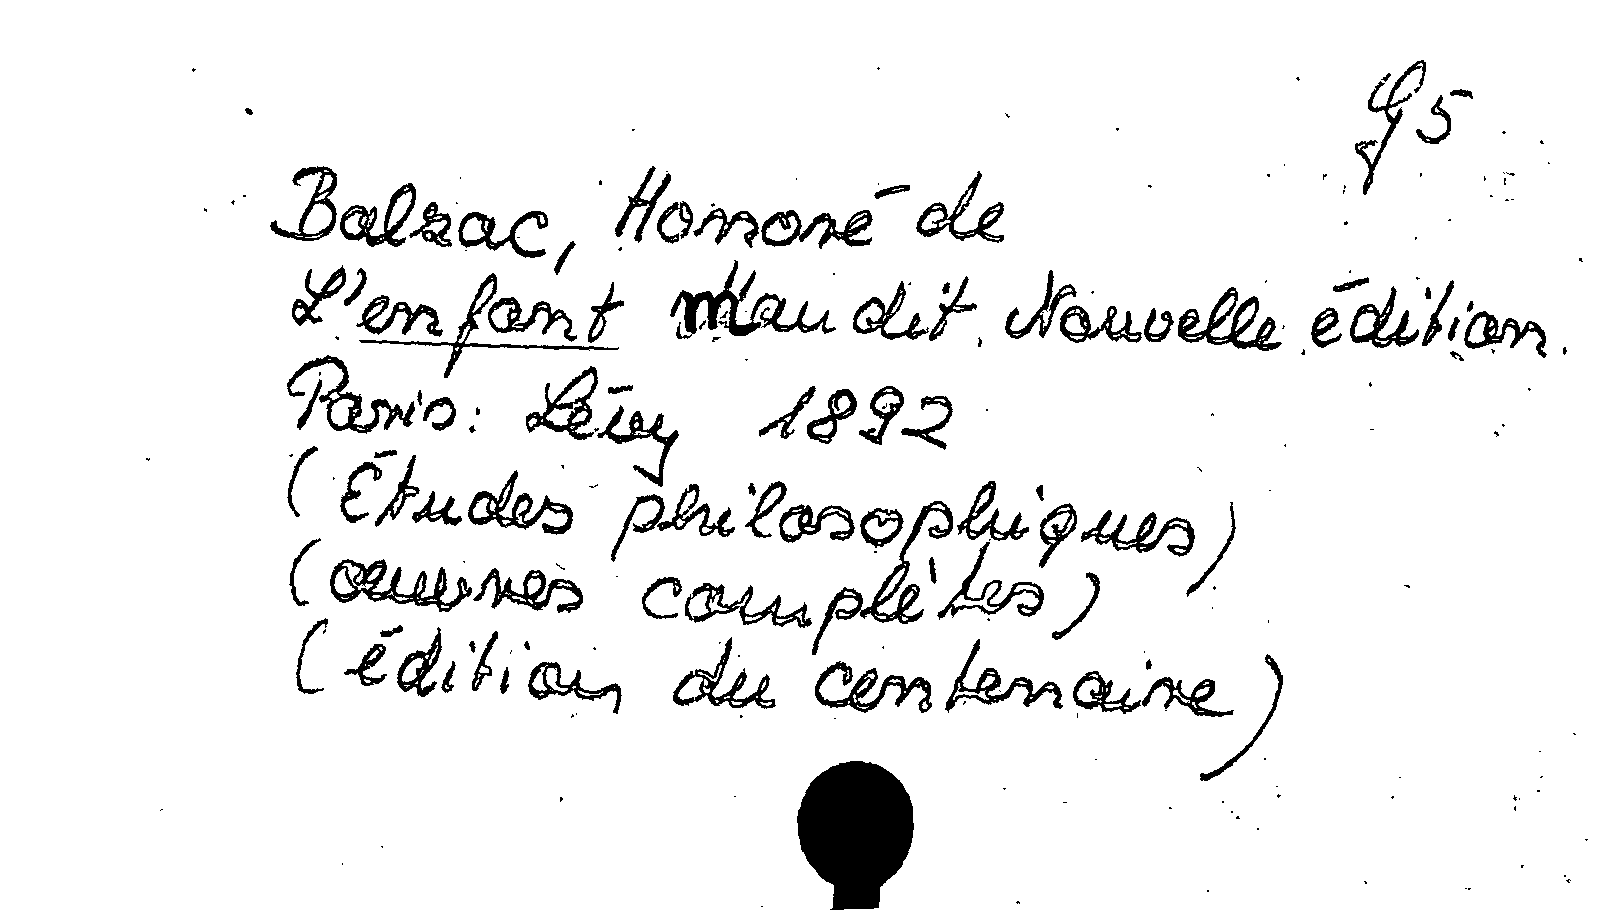 G5
Balzac, Honoré de
L'enfant maudit. Nouvelle édition.
Paris: Lévy 1892
(Études philosophiques)
(œuvres complètes)
(édition du centenaire)